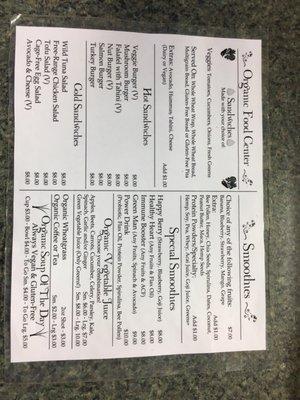 Organic Food Center
Sandwiches
Made with your choice of:
Veggies: Tomatoes, Cucumbers, Onions, Fresh Greens
Served On: Whole Wheat Wrap, Whole Wheat Bread,
Multigrain Bread, Gluten-Free Bread or Gluten-Free Pita
Extras: Avocado, Hummus, Tahini, Cheese
(Dairy or Vegan) Add $1.00
Hot Sandwiches
Veggie Burger (V) $8.00
Mushroom Burger $8.00
Falafel with Tahini (V) $8.00
Nut Burger (V) $8.00
Salmon Burger $8.00
Turkey Burger $8.00
Cold Sandwiches
Wild Tuna Salad $8.00
Free-Range Chicken Salad $8.00
Tofu Salad (V) $8.00
Cage-Free Egg Salad $8.00
Avocado & Cheese (V) $8.00
Smoothies
Choice of any of the following fruits: $7.00
Banana, Blueberry, Strawberry, Mango, Grape
Add $1.00
Bee Pollen, Honey, Chia Seeds, Spirulina, Dates, Coconut,
Peanut Butter, Maca, Hemp Seeds
Protein Powders/Specialty Add $1.00
Special Smoothies
Happy Berry (Strawberry, Blueberry, Goji Juice) $8.00
Healthy Heart (Any Fruits & Flax Oil) $8.00
Immune Booster (Any Fruits & ACF) $8.00
Green Man (Any Fruits, Spinach & Avocado) $9.00
Power Drink $10.00
(Probiotic, Flax Oil, Protein Powder, Spirulina, Bee Pollen)
Organic Vegetable Juice
Apples, Beets, Carrots, Cucumber, Celery, Parsley, Kale,
Spinach, Garlic and/or Ginger Sm. $6.00 - Lg. $7.00
Green Vegetable Juice (Only Greens) Sm. $8.00 - Lg. 10.00
Organic Wheatgrass 2oz Shot - $3.00
Organic Coffee or Tea Sm. $2.00 - Lg $3.00
Organic Soup Of The Day
Always Vegan & Gluten-Free
Cup $3.00 - Bowl $4.00 - To Go Sm. $4.00 - To Go Lg. $5.00